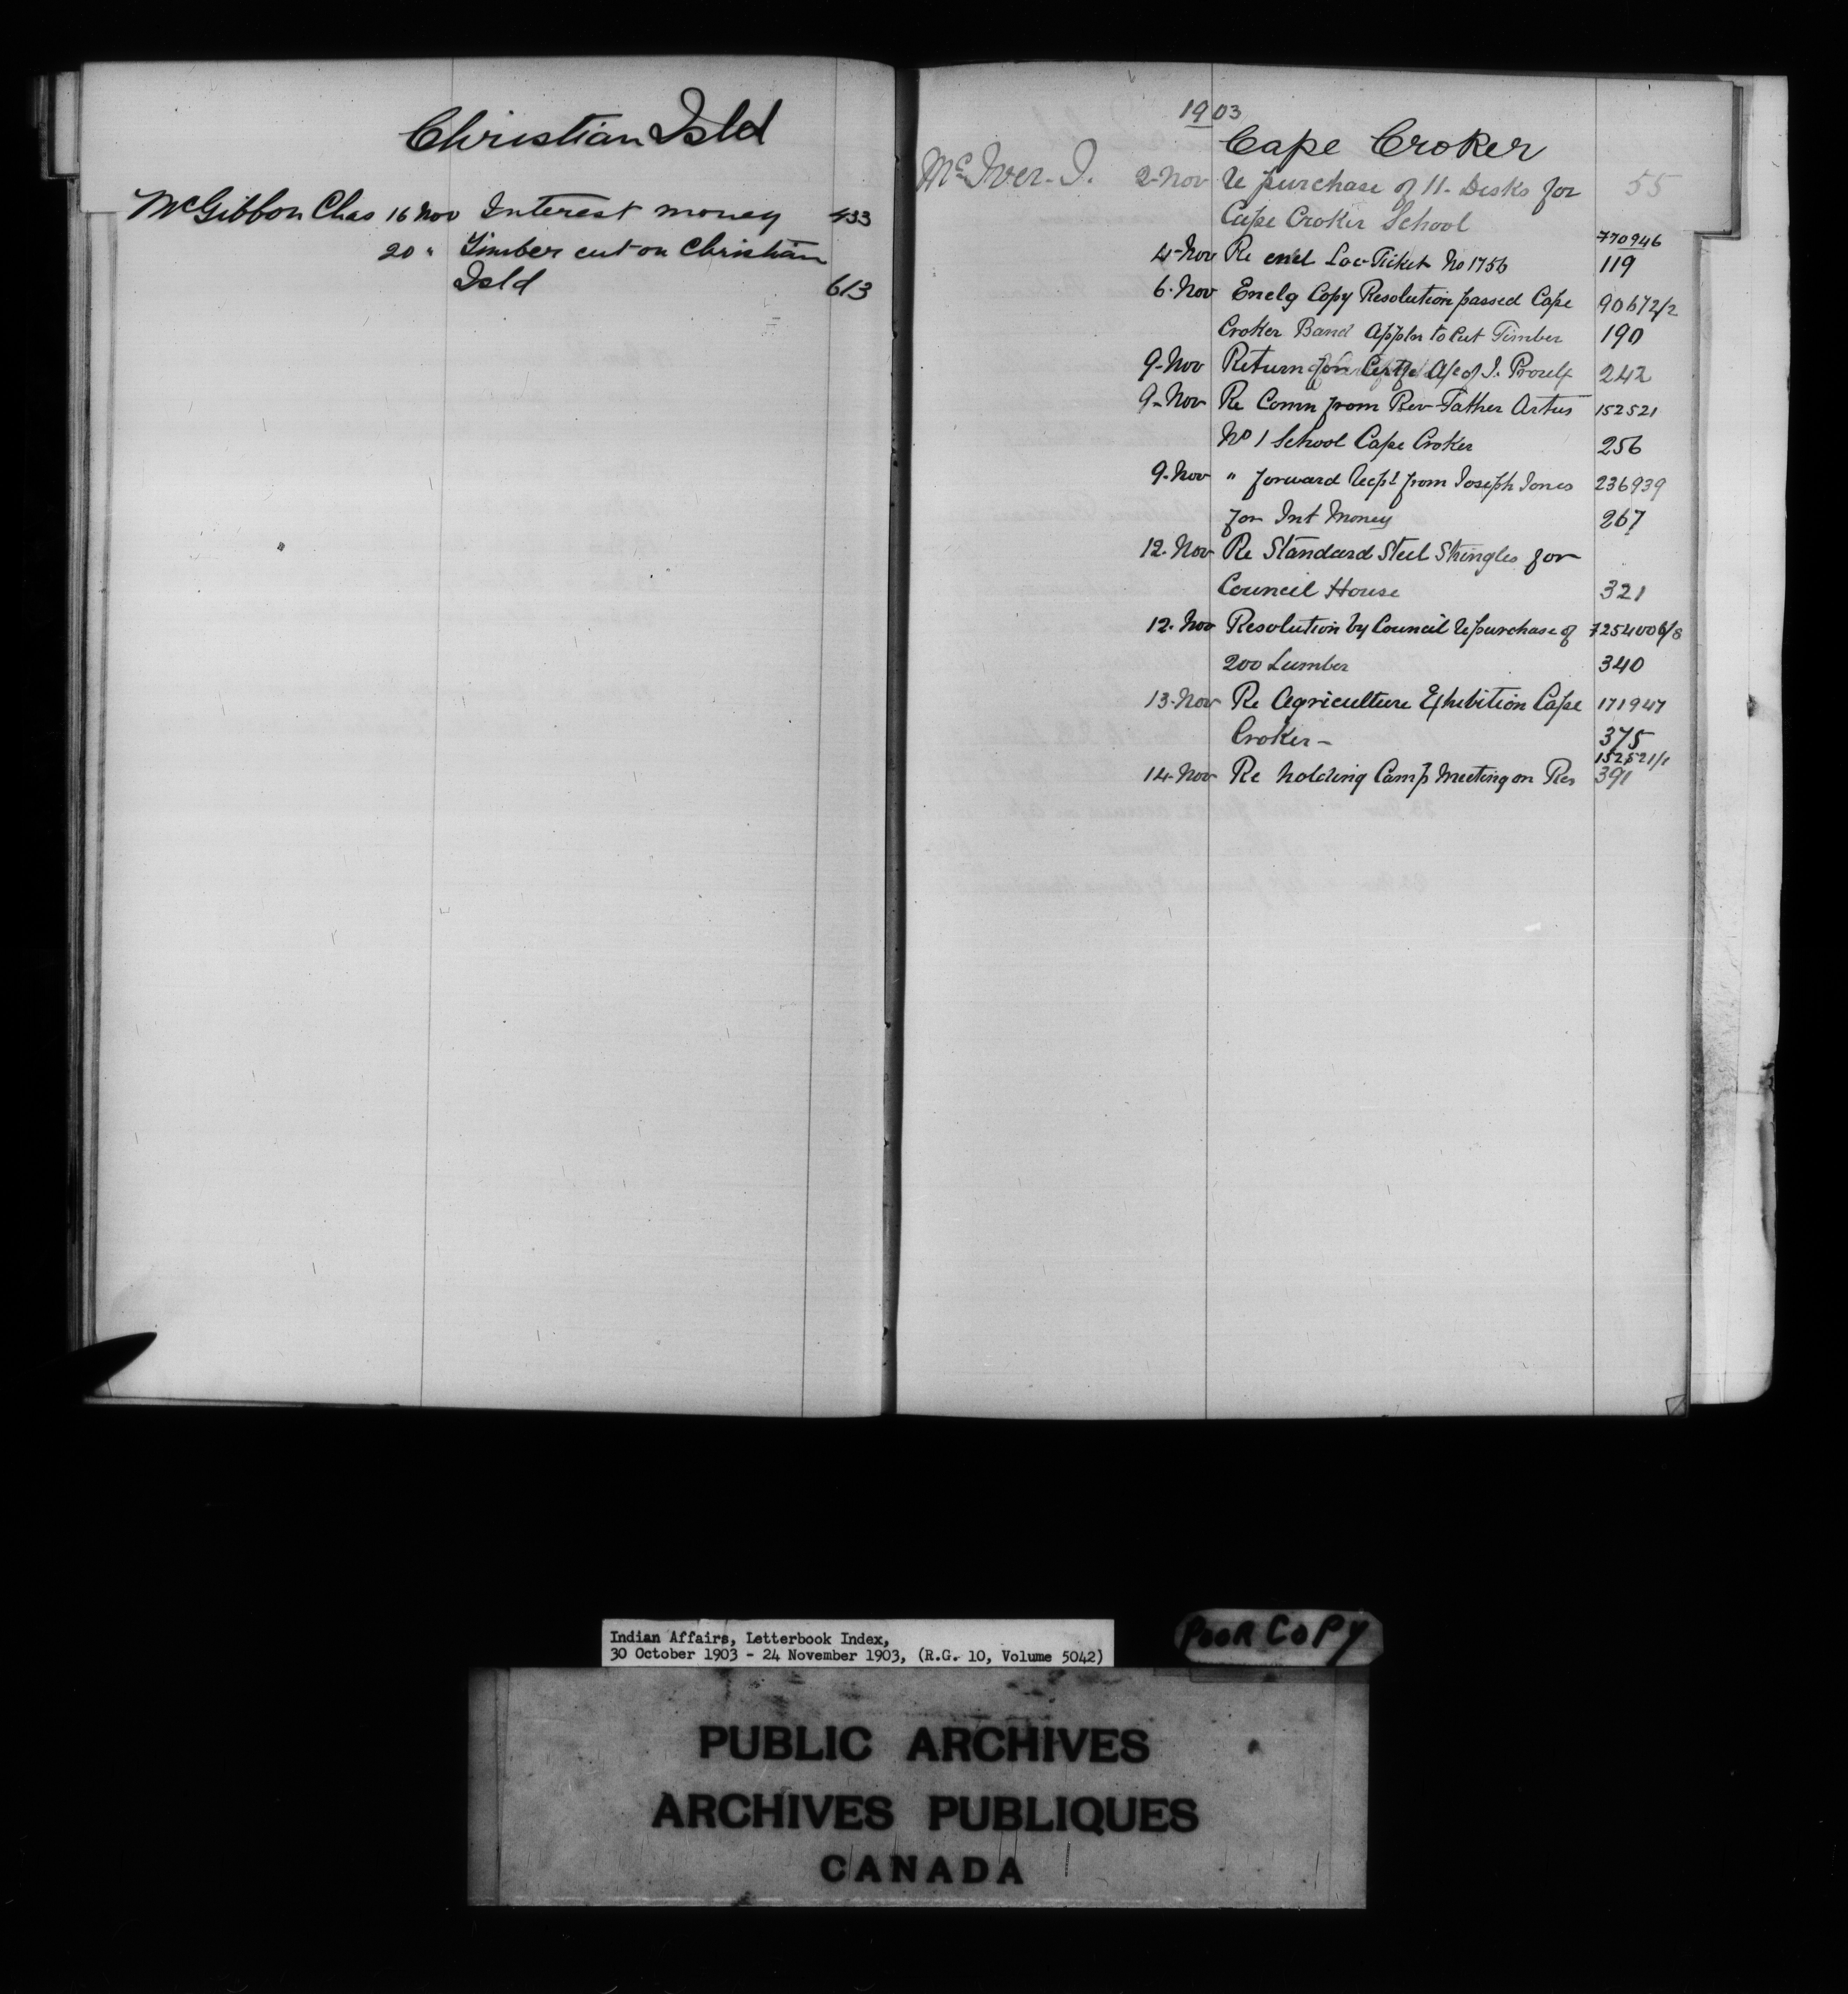 Christian Isld
McGibbon Chas 16 Nov Interest money 433
20 " Timber cut on Christian
Isld 613
1903
Cape Croker
McIver. J. 2-Nov Re purchase of 11- Desks for 55
Cape Croker School
770946
4-Nov Re encl Loc-Ticket No 1756 119
6-Nov Enclg Copy Resolution passed Cape 90672/2
Croker Band Appln to Cut Timber 190
9-Nov Return for Certfe A/c of J. 242
9-Nov Re Comn from Rev-Father Artus 152521
No 1 School Cape Croker 256
9-Nov " forward Recpt from Joseph Jones 236939
for Int Money 267
12-Nov Re Standard Steel Shingles for
Council House 321
12-Nov Resolution by Council Re purchase of
200 Lumber 340
13-Nov Re Agriculture Exhibition Cape 171947
Croker - 375
152521/1
14-Nov Re holding Camp Meeting on Res 391
Indian Affairs, Letterbook Index,
30 October 1903 - 24 November 1903, (R.G. 10, Volume 5042)
POOR COPY
PUBLIC ARCHIVES
ARCHIVES PUBLIQUES
CANADA